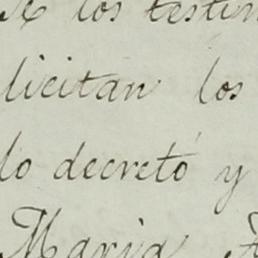 los testim
licitan los
lo decretó y
Maria A